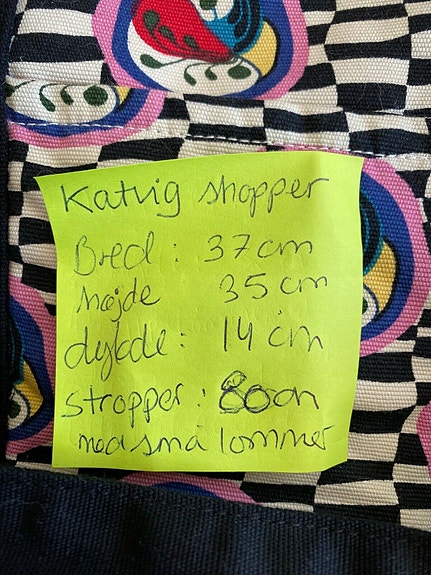 Katvig shopper
Bred : 37 cm
Højde 35 cm
dybde : 14 cm
stropper : 80 cm
med små lommer